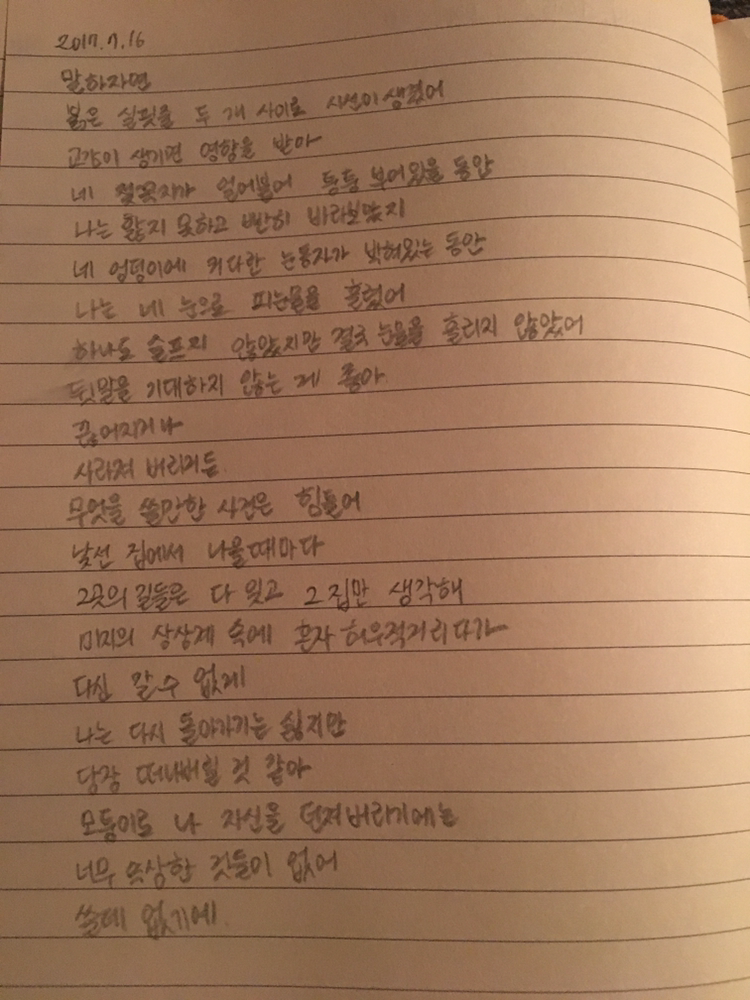 2017.7.16
말하자면
붉은 실핏줄 두 개 사이로 시선이 생겼어
교감이 생기면 영향을 받아
네 젖꼭지가 얼어붙어 퉁퉁 부어있을 동안
나는 핥지 못하고 빤히 바라보았지
네 엉덩이에 커다란 눈동자가 박혀있는 동안
나는 네 눈으로 피눈물을 흘렸어
하나도 슬프지 않았지만 결국 눈물을 흘리지 않았어
뒷말을 기대하지 않는 게 좋아
끊어지거나
사라져 버리거든
무엇을 쓸만한 사건은 힘들어
낯선 집에서 나올때마다
그곳의 길들은 다 잊고 그 집만 생각해
미지의 상상계 속에 혼자 허우적거리다가
다신 갈 수 없게
나는 다시 돌아가기는 싫지만
당장 떠나버릴 것 같아
모퉁이로 나 자신을 던져버리기에는
너무 앙상한 것들이 없어
쓸데 없기에